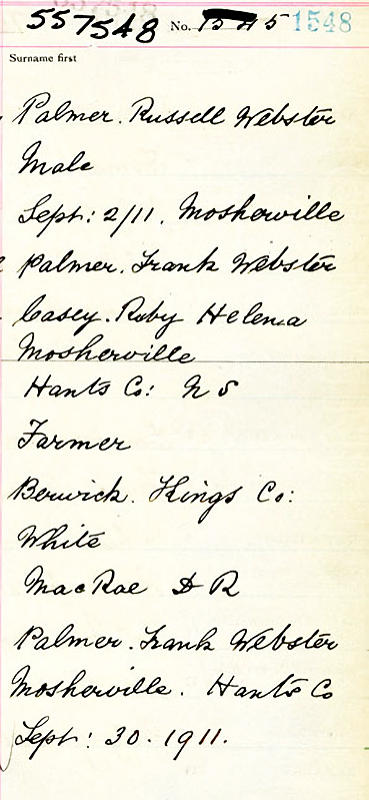 557548 No. 1545 1548
Surname first
Palmer. Russell Webster
Male
Sept: 2/11. Mosherville
Palmer. Frank Webster
Casey. Ruby Helena
Mosherville
Hants Co: N S
Farmer
Berwick. Kings Co:
White
MacRae D R
Palmer. Frank Webster
Mosherville. Hants Co
Sept: 30. 1911.